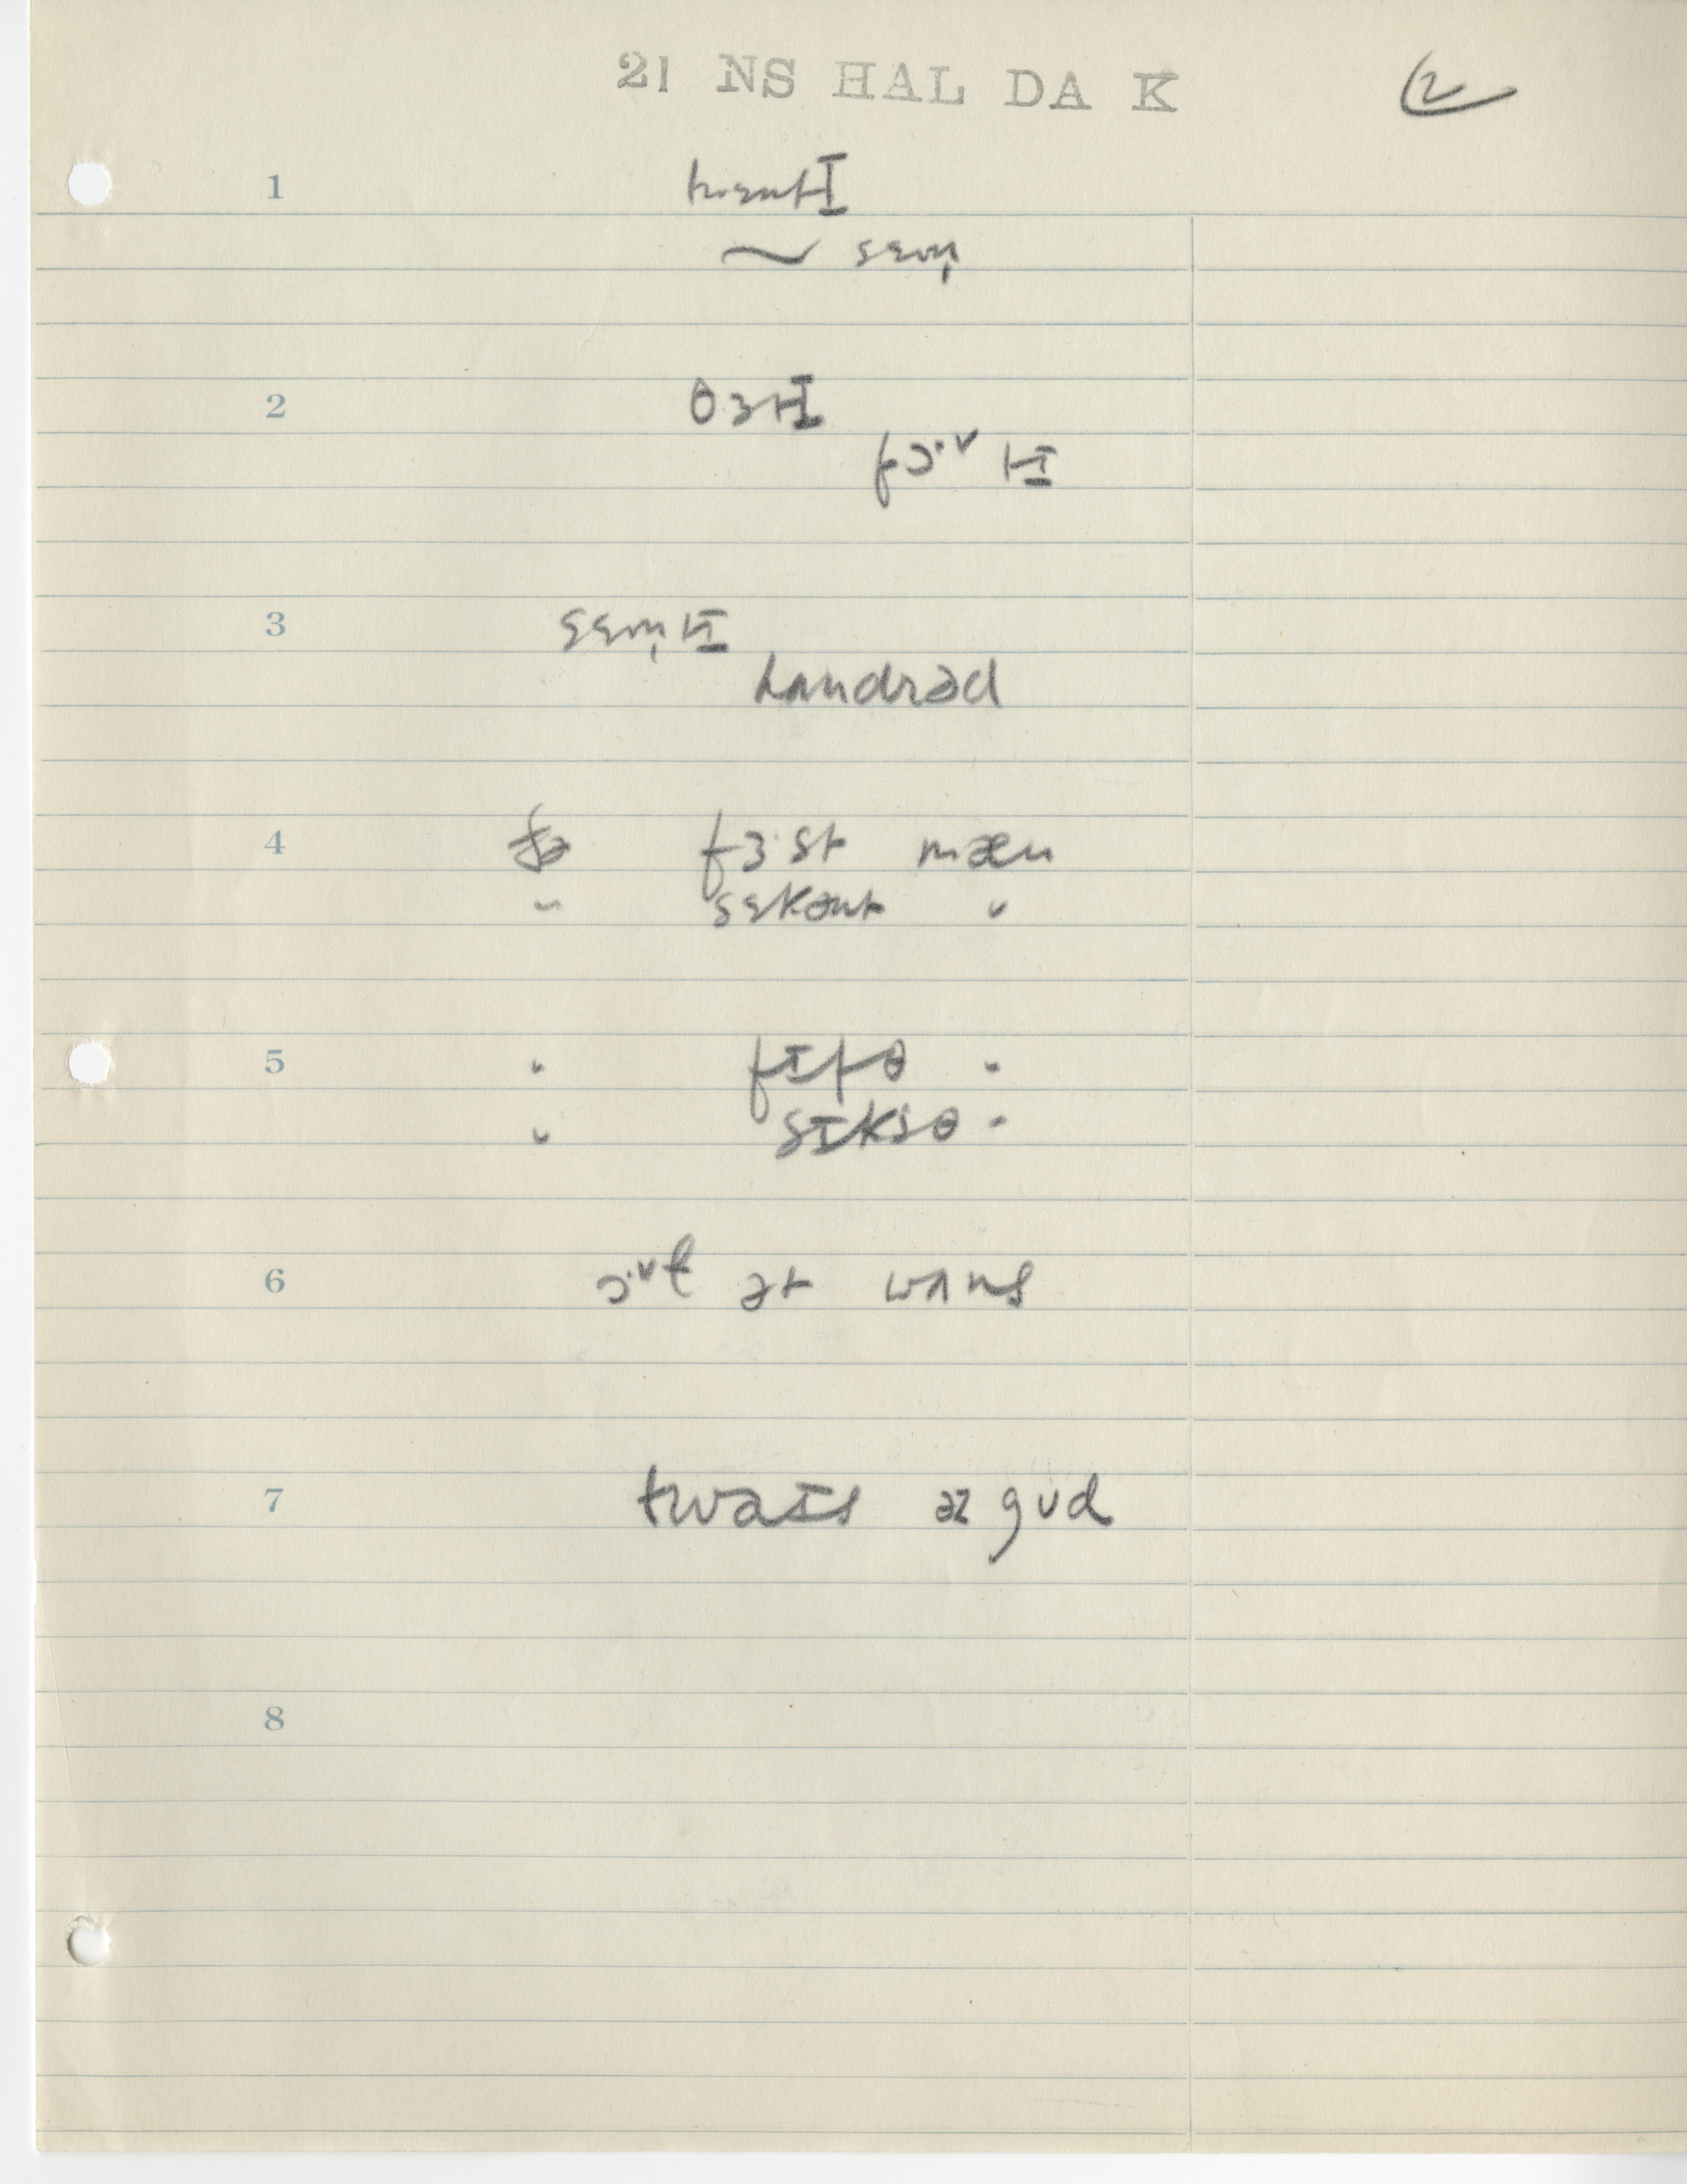 21 NS HAL DA K 2
1 twɛntɪ
~ sɛvm̩
2 θɜtɪ
fɔ·ᵛtɪ
3 sɛvm̩tɪ
hʌndrəd
4 ðə fɜ·st mæn
" sɛkənt "
5 " fɪfθ "
" sɪksθ "
6 ɔ·ᵛɫ ət wʌns
7 twaɪs əz gʊd
8